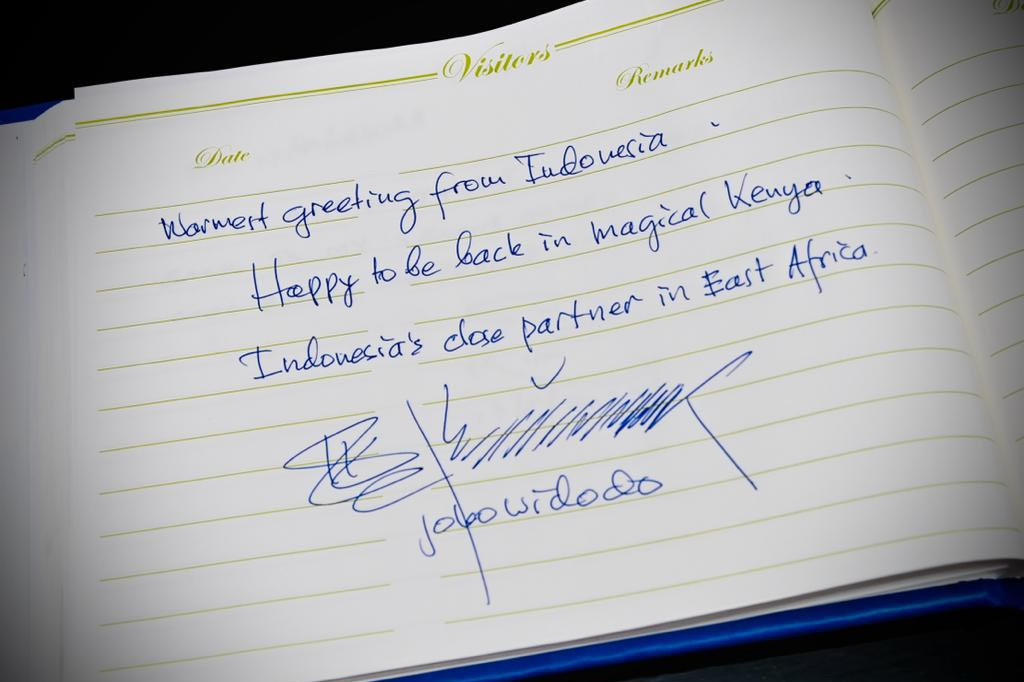 Visitors
Date
Remarks
Warmest greeting from Indonesia.
Happy to be back in magical Kenya.
Indonesia's close partner in East Africa.
joko widodo